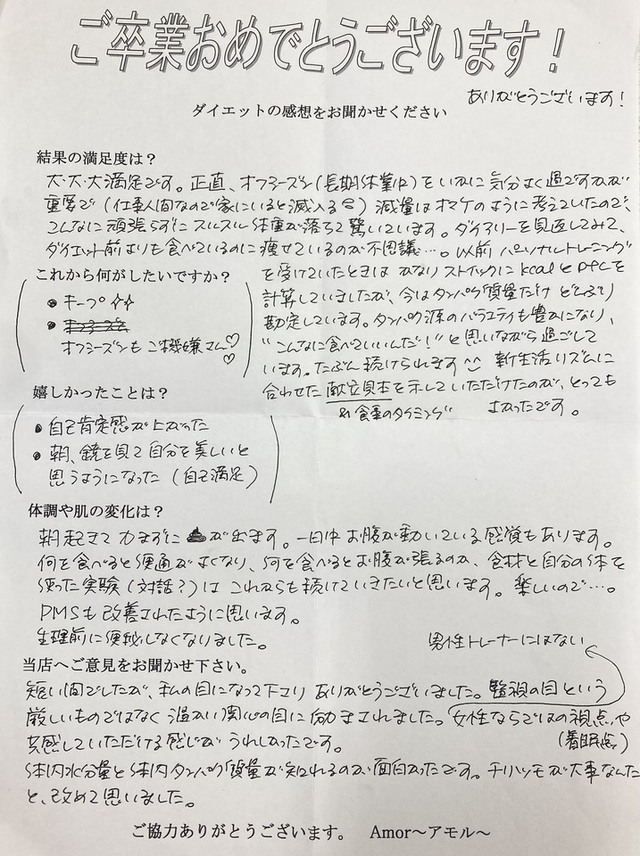 ご卒業おめでとうございます！
ありがとうございます！
ダイエットの感想をお聞かせください
結果の満足度は？
大・大・大満足です。正直、オフシーズン（長期休業中）をいかに気分よく過ごすかが
重要で（仕事人間なので家にいると滅入る）減量はオマケのように考えていたので、
こんなに頑張らずにスルスル体重が落ちて驚いています。ダイアリーを見返してみて、
ダイエット前よりも食べているのに痩せているのが不思議…。以前パーソナルトレーニング
を受けていたときはかなりストイックにkcalとPFCを
計算していましたが、今はタンパク質量だけどんぶり
勘定しています。タンパク源のバラエティも豊かになり、
"こんなに食べていいんだ！"と思いながら過ごして
います。たぶん続けられます 新生活リズムに
合わせた献立見本を示していただけたのが、とっても
&食事のタイミング よかったです。
これから何がしたいですか？
●キープ☆☆
●
オフシーズンもご機嫌さん♡♡
嬉しかったことは？
●自己肯定感が上がった
●朝、鏡を見て自分を美しいと
思うようになった（自己満足）
体調や肌の変化は？
朝起きて力まずに💩が出ます。一日中お腹が動いている感覚もあります。
何を食べると便通がよくなり、何を食べるとお腹が張るのか、食材と自分の体を
使った実験（対話？）はこれからも続けていきたいと思います。楽しいので…。
PMSも改善されたように思います。
生理前に便秘しなくなりました。
男性トレーナーにはない
当店へご意見をお聞かせ下さい。
短い間でしたが、私の目になって下さりありがとうございました。監視の目という
厳しいものではなく温かい関心の目に励まされました。女性ならではの視点や
（着眼点）
共感していただける感じがうれしかったです。
体内水分量と体内タンパク質量が知れるのが面白かったです。チリツモが大事なんだ
と、改めて思いました。
ご協力ありがとうございます。 Amor～アモル～